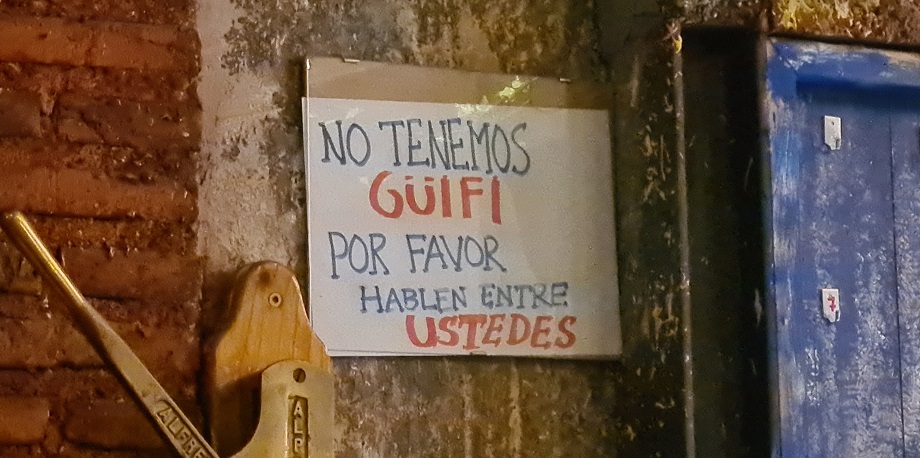 NO TENEMOS
GÜIFI
POR FAVOR
HABLEN ENTRE
USTEDES